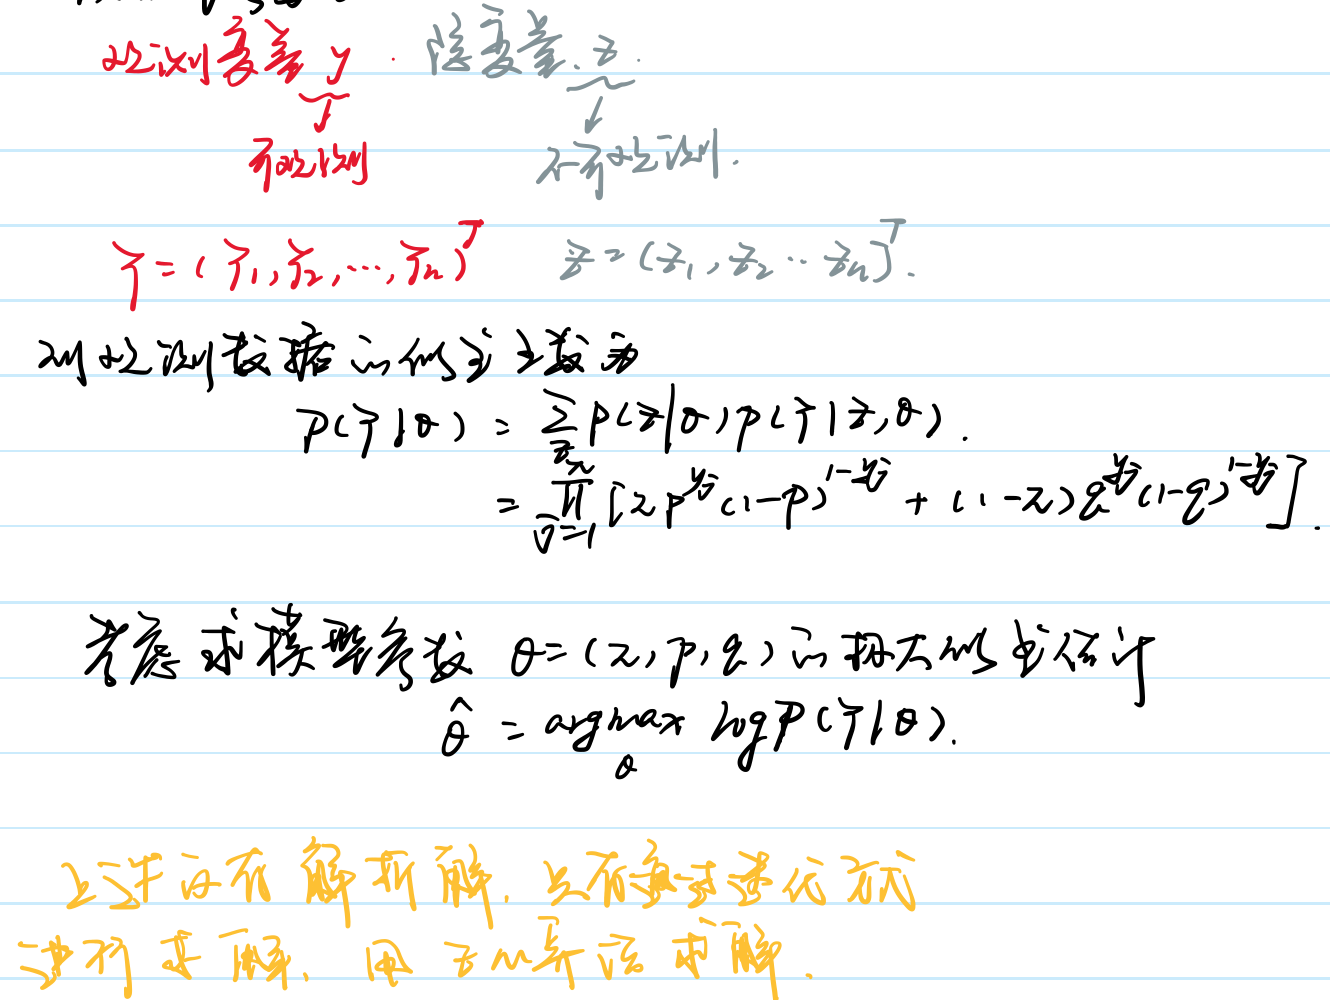 观测变量 y . 隐变量. z.
可观测 不可观测.
Y = (Y₁, Y₂, ..., Yₙ)ᵀ Z = (Z₁, Z₂ ... Zₙ)ᵀ.
则观测数据的似然函数为
P(Y|θ) = ∑_Z P(Z|θ) P(Y|Z,θ).
= ∏_{j=1}^{n} [π p^{y_j} (1-p)^{1-y_j} + (1-π) q^{y_j} (1-q)^{1-y_j}].
考虑求模型参数 θ=(π, p, q) 的极大似然估计
θ̂ = argmax_θ log P(Y|θ).
上式没有解析解, 只有通过迭代方式
进行求解, 用EM算法求解.